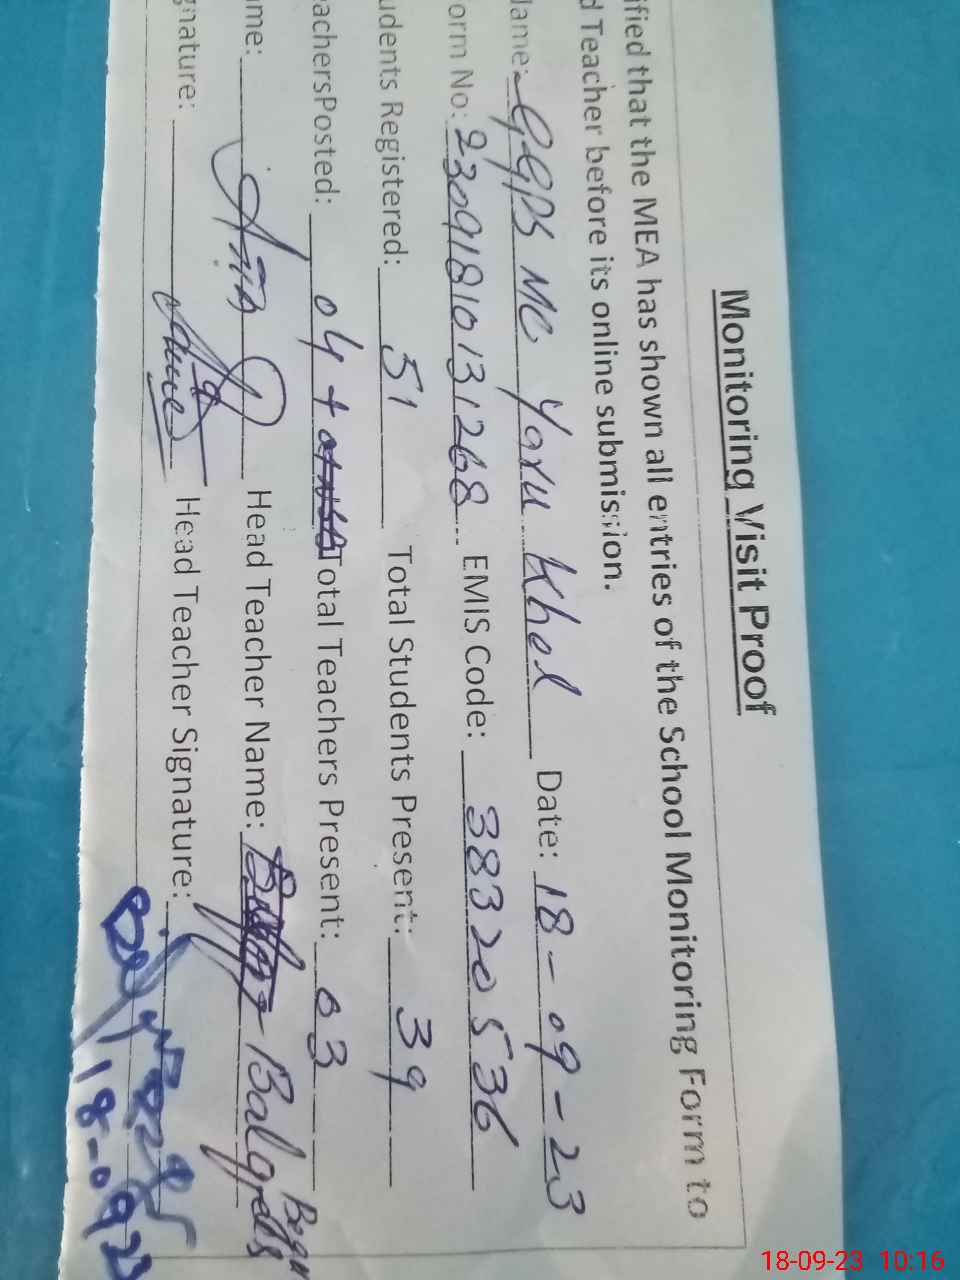 Monitoring Visit Proof
ified that the MEA has shown all entries of the School Monitoring Form to
d Teacher before its online submission.
lame: GGPS MC Yaru Khel Date: 18-09-23
orm No: 23091810131268 EMIS Code: 38320536
udents Registered: 51 Total Students Present: 39
eachersPosted: 04 + Total Teachers Present: 03
ame: Head Teacher Name: Balqees Begum
gnature: Head Teacher Signature:
18-09-23
18-09-23 10:16